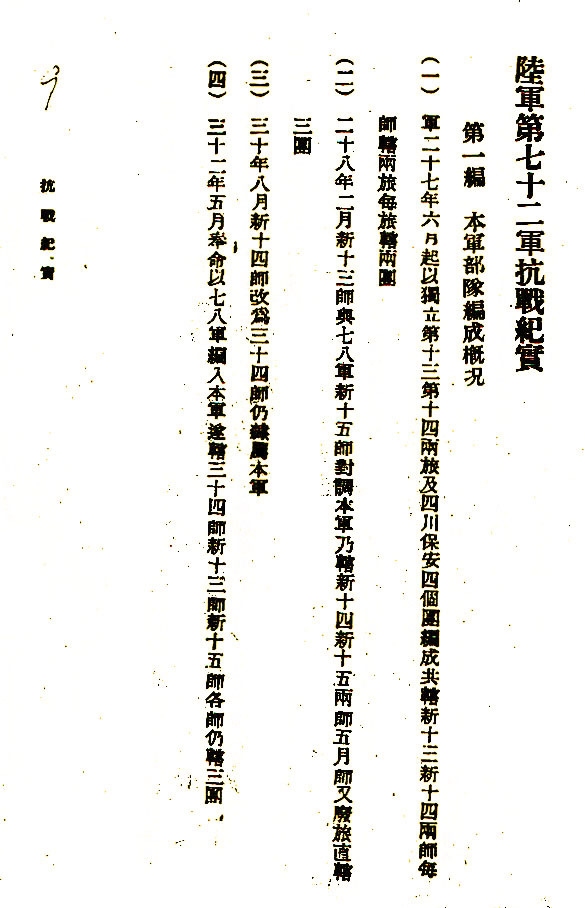 陸軍第七十二軍抗戰紀實
第一編　本軍部隊編成概況
(一)　軍二十七年六月起以獨立第十三第十四兩旅及四川保安四個團編成共轄新十三新十四兩師每
師轄兩旅每旅轄兩團
(二)　二十八年二月新十三師與七八軍新十五師對調本軍乃轄新十四新十五兩師五月師又廢旅直轄
三團
(三)　三十年八月新十四師改為三十四師仍隸屬本軍
(四)　三十二年五月奉命以七八軍編入本軍遂轄三十四師新十三師新十五師各師仍轄三團
抗戰紀實